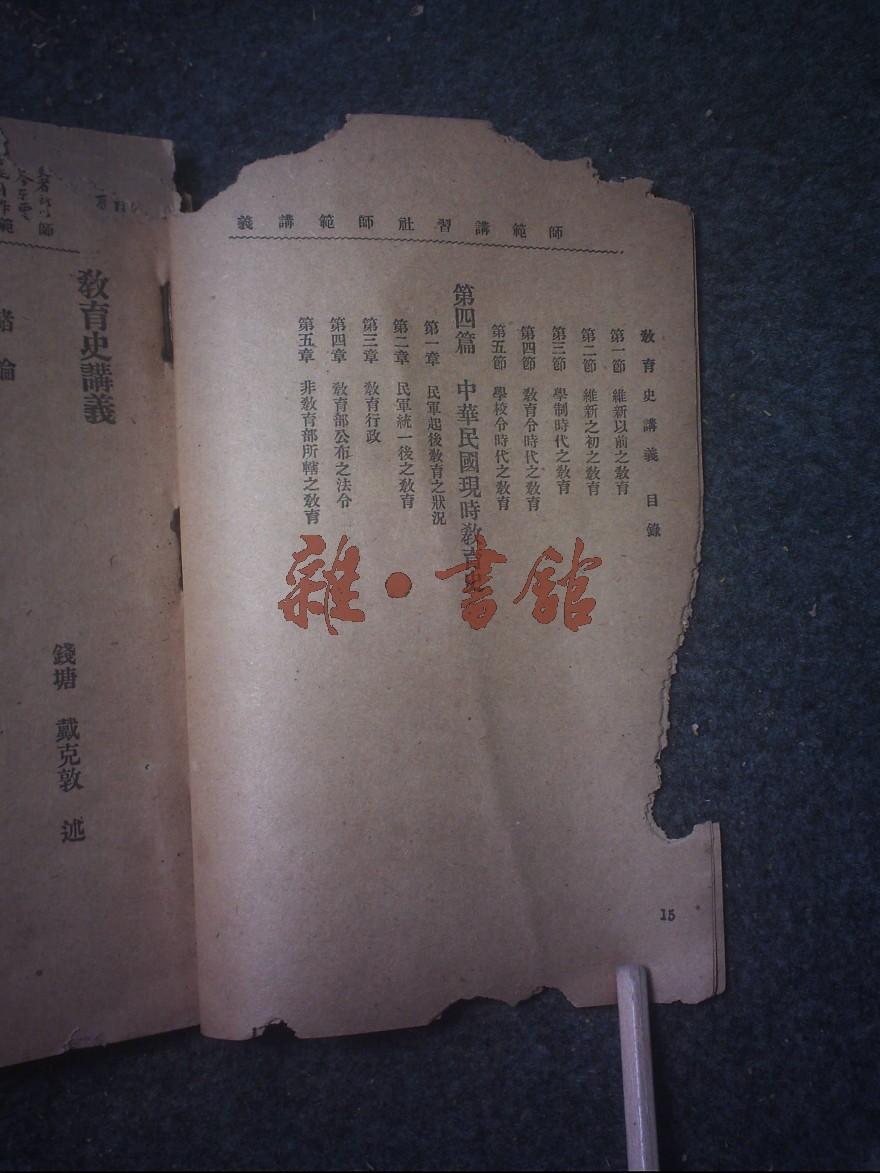 師範講習社師範講義
教育史講義目錄
第一節 維新以前之教育
第二節 維新之初之教育
第三節 學制時代之教育
第四節 教育令時代之教育
第五節 學校令時代之教育
第四篇 中華民國現時教育史
第一章 民軍起後教育之狀況
第二章 民軍統一後之教育
第三章 教育行政
第四章 教育部公布之法令
第五章 非教育部所轄之教育
15
雜·書館
師範
教育史講義
錢塘 戴克敦 述
緒論